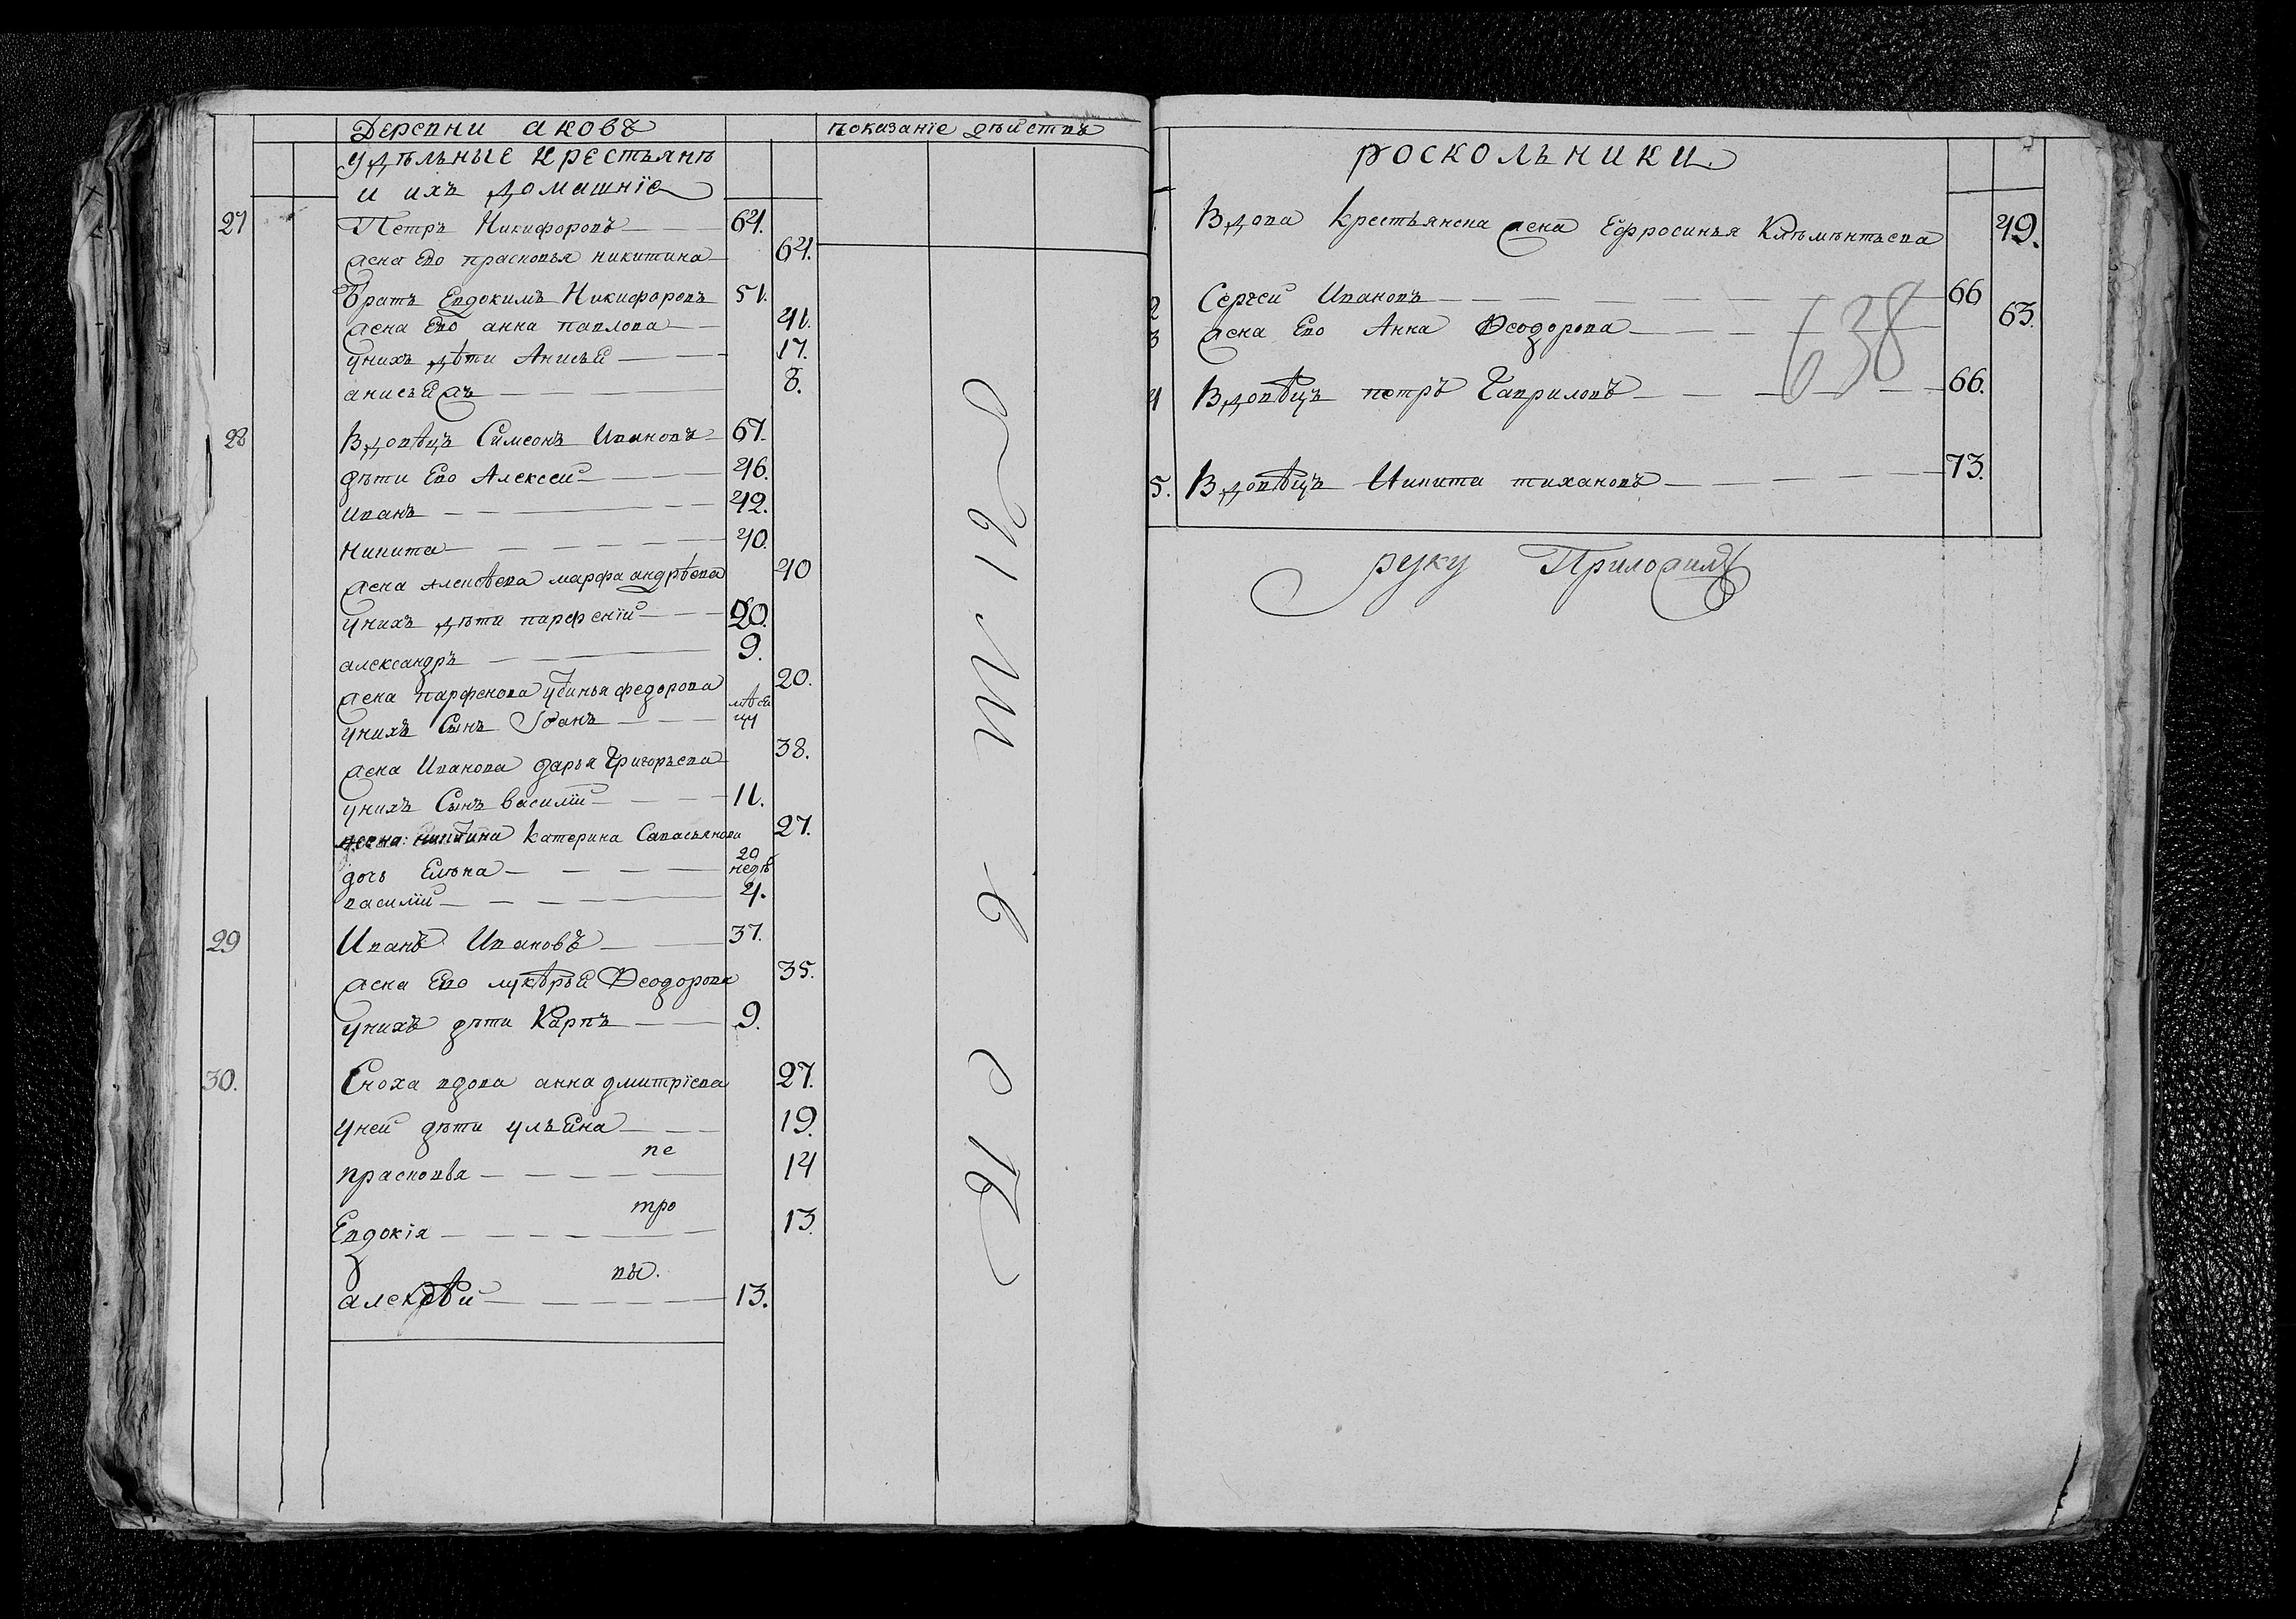 Деревни аковъ
показанїе дѣйствъ
удѣльные крестьянѣ
и ихъ домашнїе
27 Петръ Никифоровъ 64.
жена Ево прасковья никитина 64.
братъ Евдокимъ Никифоровъ 51.
жена Ево анна павлова 41.
унихъ дѣти Анисья 17.
8.
28 Вдовѣцъ Симеонъ Ивановъ 67.
дѣти Ево Алексеи 46.
иванъ 42.
никита 40.
жена алексѣева марфа андрѣева 40
унихъ дѣти парфенїй 20.
александръ 9.
жена парфенова федорова 20.
унихъ Сынъ
жена Иванова дарья Григорьева 38.
унихъ Сынъ василїй 11.
жена никитина катерина Савасьянова 27.
20
дочь Елѣна недѣ
василїй 4.
29 Иванъ Ивановъ 37.
жена Ево лукѣрья Ѳеодорова 35.
унихъ дѣти Карпъ 9.
30. Сноха вдова анна дмитрїева 27.
уней дѣти ульяна 19.
пе
прасковья 14
тро
Евдокїя 13.
въ.
алексѣй 13.
роскольники
1. Вдова крестьянска жена Ефросинья Клѣмѣнтьева 49.
2 Сергеи Ивановъ 66
3 жена Ево Анна Ѳеодорова 63.
638
4 Вдовѣцъ петръ Гавриловъ 66.
5. Вдовѣцъ Никита тихановъ 73.
руку Приложилъ